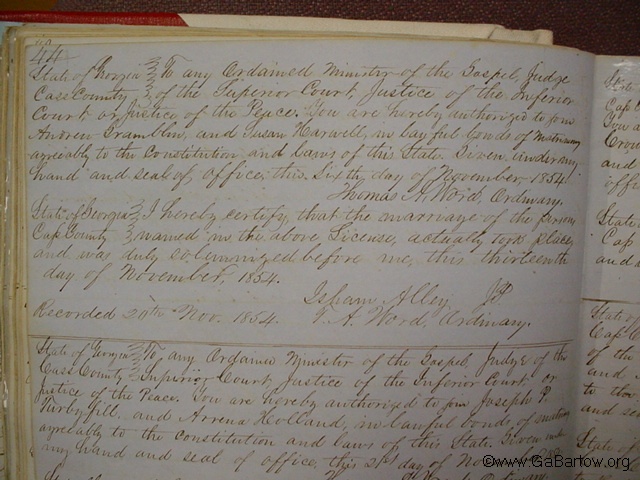 44
State of Georgia } To any Ordained Minister of the Gospel, Judge
Cass County } of the Superior Court, Justice of the Inferior
Court or Justice of the Peace. You are hereby authorized to join
Andrew Tramblin, and Susan Harwell, in lawful bonds of matrimony
agreiably to the Constitution and laws of this State. Given, under my
hand and seal of office, this Sixth day of November, 1854.
Thomas A. Word, Ordinary.
State of Georgia } I hereby certify, that the marriage of the persons
Cass County } named in the above License, actually took place,
and was duly solemnized before me, this thirteenth
day of November, 1854.
Isham Alley JP
Recorded 20th Nov. 1854. T. A. Word, Ordinary.
State of Georgia } To any Ordained Minister of the Gospel, Judge of the
Cass County } Superior Court, Justice of the Inferior Court or
Justice of the Peace. You are hereby authorized to join Joseph P.
and Arrena Holland, in lawful bonds of matrimony
agreeably to the constitution and laws of this State. Given under
my hand and seal of office, this 21st day of
©www.GaBartow.org